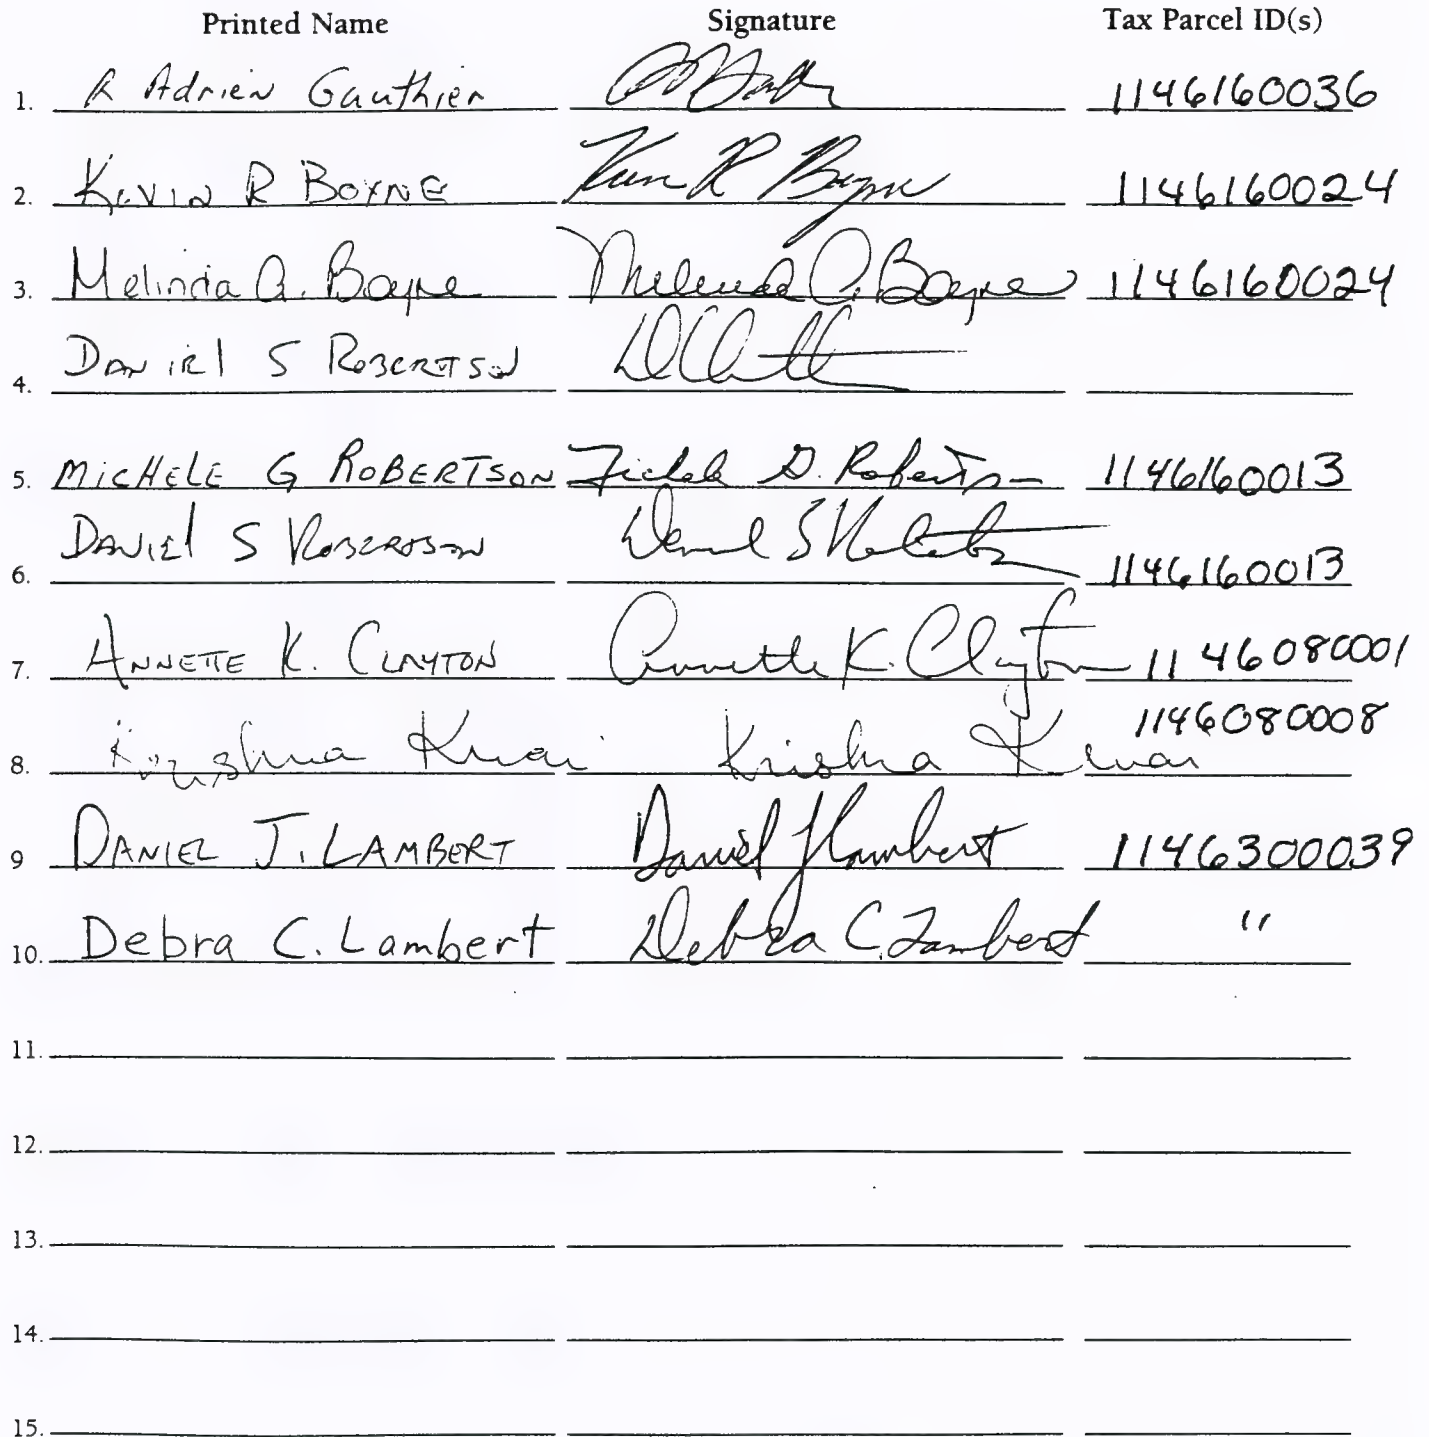 Printed Name Signature Tax Parcel ID(s)
1. R Adrien Gauthier 1146160036
2. KEVIN R BOYNE Kevin R Boyne 1146160024
3. Melinda A. Boyne Melinda A. Boyne 1146160024
4. DANIEL S ROBERTSON
5. MICHELE G ROBERTSON Michele G. Robertson 1146160013
6. DANIEL S ROBERTSON Daniel S Robertson 1146160013
7. ANNETTE K. CLAYTON Annette K. Clayton 1146080001
8. Krishna Krishna 1146080008
9 DANIEL J. LAMBERT Daniel J Lambert 1146300039
10. Debra C. Lambert Debra C. Lambert "
11.
12.
13.
14.
15.